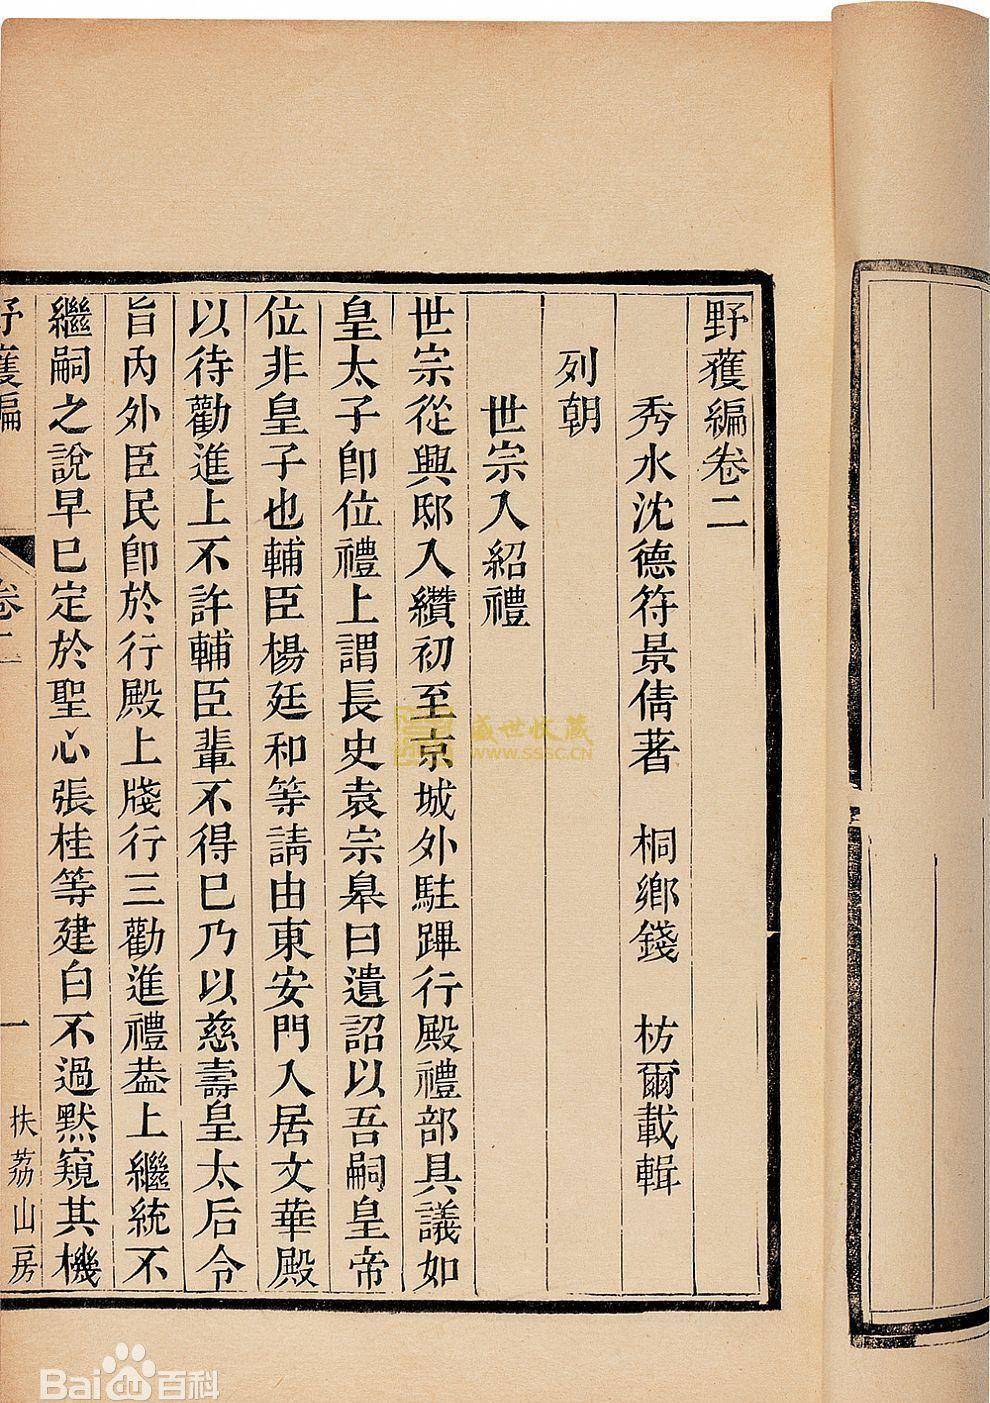 野獲編卷二
秀水沈德符景倩著　桐鄉錢　枋爾載輯
列朝
世宗入紹禮
世宗從興邸入纘初至京城外駐蹕行殿禮部具議如
皇太子卽位禮上謂長史袁宗皋曰遺詔以吾嗣皇帝
位非皇子也輔臣楊廷和等請由東安門入居文華殿
以待勸進上不許輔臣輩不得已乃以慈壽皇太后令
旨內外臣民卽於行殿上牋行三勸進禮葢上繼統不
繼嗣之說早已定於聖心張桂等建白不過默窺其機
野獲編
卷二
一
扶荔山房
盛世收藏
WWW.SSSC.CN
Baidu百科